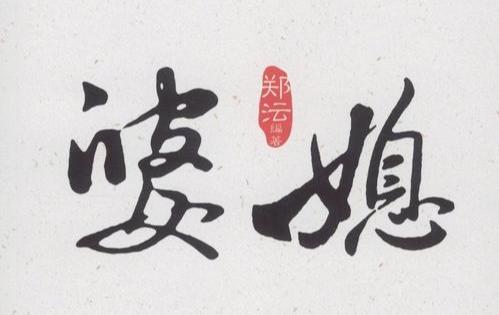 婆媳
郑沄
编著